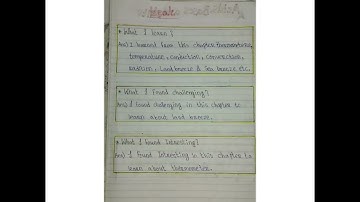 * What I learn?
Ans) I learned from this chapter thermometer,
temperature, conduction, convection,
radiation, Land breeze & Sea breeze etc.
* What I Found challenging?
Ans) I found challenging in this chapter to
learn about land breeze.
* What I Found Interesting?
Ans) I Found Interesting in this chapter to
learn about thermometer.